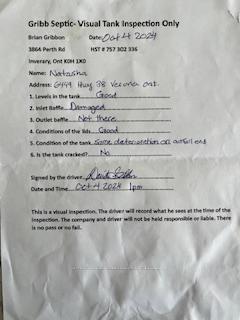 Gribb Septic- Visual Tank Inspection Only
Brian Gribbon Date: Oct 4 2024
3864 Perth Rd HST # 757 302 336
Inverary, Ont K0H 1X0
Name: Natasha
Address: 6499 Hwy 38 Verona ont.
1. Levels in the tank Good
2. Inlet Baffle Damaged
3. Outlet baffle Not there
4. Conditions of the lids Good
5. Condition of the tank some deterioration on outfall end
6. Is the tank cracked? No
Signed by the driver
Date and Time. Oct 4 2024 1pm
This is a visual inspection. The driver will record what he sees at the time of the
inspection. The company and driver will not be held responsible or liable. There
is no pass or no fail.